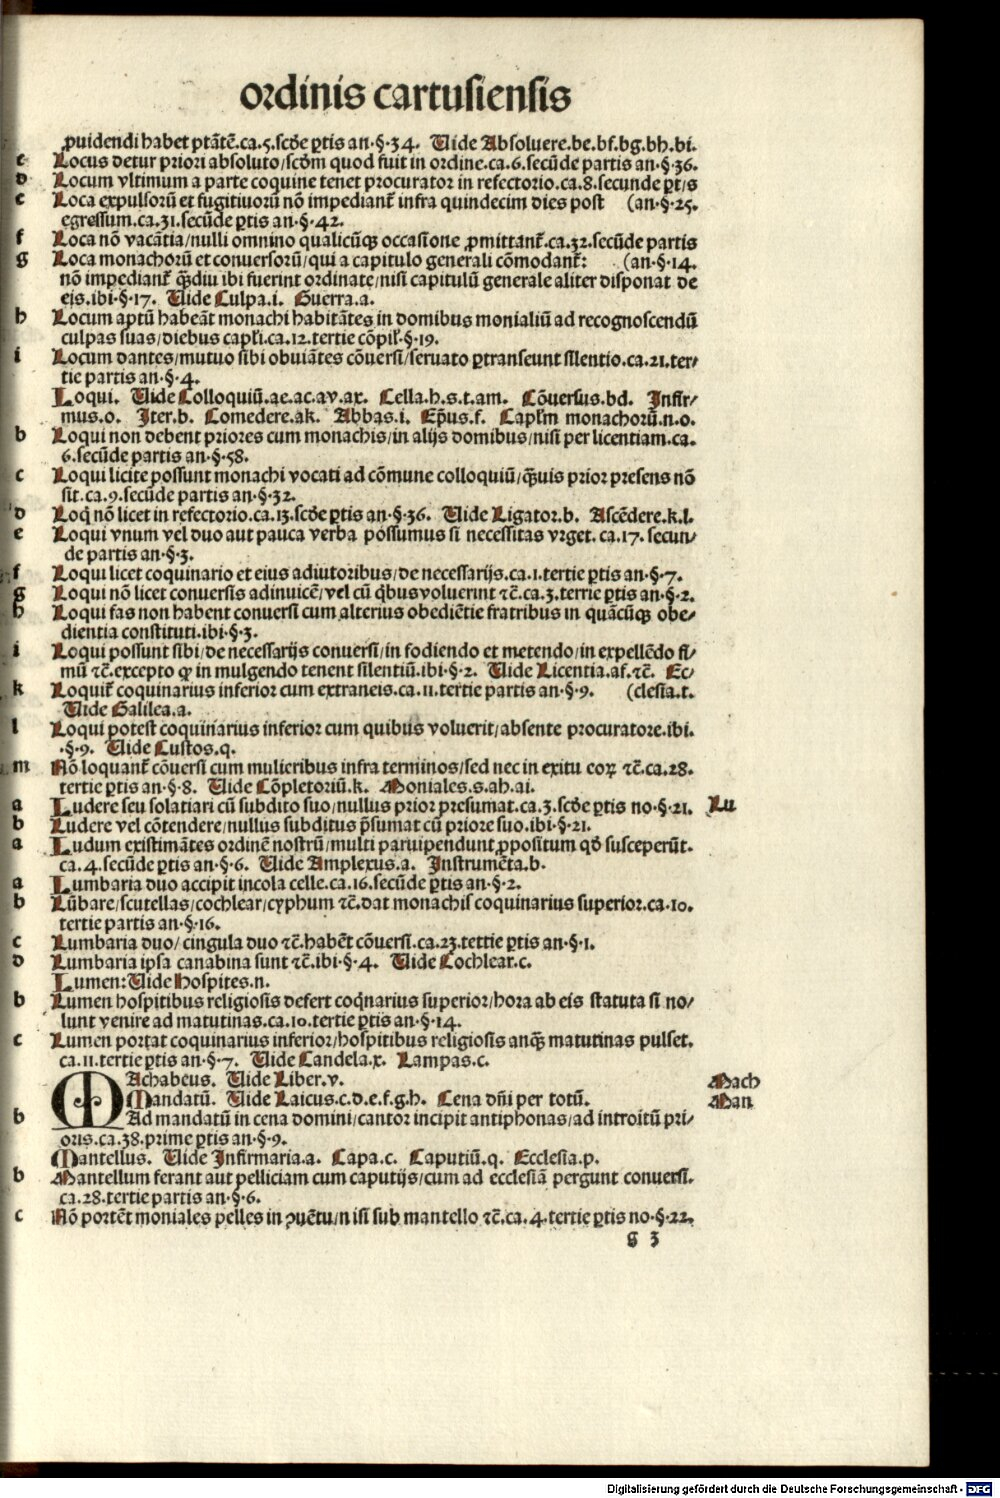 ordinis cartusiensis
ꝓuidendi habet ptãtẽ.ca.5.scďe ꝑtis an.§.34. Uide Absoluere.be.bf.bg.bh.bi.
c Locus detur priori absoluto/scďm quod fuit in ordine.ca.6.secũde partis an.§.36.
d Locum vltimum a parte coquine tenet procurator in refectorio.ca.8.secunde ꝑt/s
e Loca expulsorũ et fugitiuorũ nõ impediant᷑ infra quindecim dies post (an.§.25.
egressum.ca.31.secũde ꝑtis an.§.42.
f Loca nõ vacãtia/nulli omnino qualicũqꝫ occasione ꝓmittant᷑.ca.32.secũde partis
g Loca monachorũ et conuersorũ/qui a capitulo generali cõmodant᷑: (an.§.14.
nõ impediant᷑ qᷓdiu ibi fuerint ordinate/nisi capitulũ generale aliter disponat de
eis.ibi.§.17. Uide Culpa.i. Guerra.a.
h Locum aptũ habeãt monachi habitãtes in domibus monialiũ ad recognoscendũ
culpas suas/diebus capłi.ca.12.tertie cõpił.§.19.
i Locum dantes/mutuo sibi obuiãtes cõuersi/seruato ꝑtranseunt silentio.ca.21.ter/
tie partis an.§.4.
Loqui. Uide Colloquiũ.ae.ac.av.ax. Cella.h.s.t.am. Cõuersus.bd. Infir/
mus.o. Iter.b. Comedere.ak. Abbas.i. Ep̃us.f. Capłm monachorũ.n.o.
b Loqui non debent priores cum monachis/in alijs domibus/nisi per licentiam.ca.
6.secũde partis an.§.58.
c Loqui licite possunt monachi vocati ad cõmune colloquiũ/qᷓuis prior presens nõ
sit.ca.9.secũde partis an.§.32.
d Loq̇ nõ licet in refectorio.ca.13.scďe ꝑtis an.§.36. Uide Ligator.b. Ascẽdere.k.l.
e Loqui vnum vel duo aut pauca verba possumus si necessitas vrget. ca.17. secun/
de partis an.§.3.
f Loqui licet coquinario et eius adiutoribus/de necessarijs.ca.1.tertie ꝑtis an.§.7.
g Loqui nõ licet conuersis adinuicẽ/vel cũ q̇bus voluerint ⁊c̃.ca.3.terrie ꝑtis an.§.2.
h Loqui fas non habent conuersi cum alterius obediẽtie fratribus in quãcũqꝫ obe/
dientia constituti.ibi.§.3.
i Loqui possunt sibi/de necessarijs conuersi/in fodiendo et metendo/in expellẽdo fi/
mũ ⁊c̃.excepto ꝙ in mulgendo tenent silentiũ.ibi.§.2. Uide Licentia.af.⁊c̃. Ec/
k Loquit᷑ coquinarius inferior cum extraneis.ca.11.tertie partis an.§.9. (clesia.t.
Uide Galilea.a.
l Loqui potest coquinarius inferior cum quibus voluerit/absente procuratore.ibi.
.§.9. Uide Custos.q.
m Nõ loquant᷑ cõuersi cum mulieribus infra terminos/sed nec in exitu eoꝝ ⁊c̃.ca.28.
tertie ꝑtis an.§.8. Uide Cõpletoriũ.k. Moniales.s.ah.ai.
a Ludere seu solatiari cũ subdito suo/nullus prior presumat.ca.3.scďe ꝑtis no.§.21. Lu
b Ludere vel cõtendere/nullus subditus p̃sumat cũ priore suo.ibi.§.21.
a Ludum existimãtes ordinẽ nostrũ/multi paruipendunt ꝓpositum qď susceperũt.
ca.4.secũde ꝑtis an.§.6. Uide Amplexus.a. Instrumẽta.b.
a Lumbaria duo accipit incola celle.ca.16.secũde ꝑtis an.§.2.
b Lũbare/scutellas/cochlear/cyphum ⁊c̃.dat monachis coquinarius superior.ca.10.
tertie partis an.§.16.
c Lumbaria duo/ cingula duo ⁊c̃.habẽt cõuersi.ca.23.tettie ꝑtis an.§.1.
d Lumbaria ipsa canabina sunt ⁊c̃.ibi.§.4. Uide Cochlear.c.
Lumen:Uide Hospites.n.
b Lumen hospitibus religiosis defert coq̇narius superior/hora ab eis statuta si no/
lunt venire ad matutinas.ca.10.tertie ꝑtis an.§.14.
c Lumen portat coquinarius inferior/hospitibus religiosis anqᷓ matutinas pulset.
ca.11.tertie ꝑtis an.§.7. Uide Candela.x. Lampas.c.
MAchabeus. Uide Liber.v. Mach
Mandatũ. Uide Laicus.c.d.e.f.g.h. Cena dñi per totũ. Man
b Ad mandatũ in cena domini/cantor incipit antiphonas/ad introitũ pri/
oris.ca.38.prime ꝑtis an.§.9.
Mantellus. Uide Infirmaria.a. Capa.c. Caputiũ.q. Ecclesia.p.
b Mantellum ferant aut pelliciam cum caputijs/cum ad ecclesiã pergunt conuersi.
ca.28.tertie partis an.§.6.
c Nõ portẽt moniales pelles in ꝯuẽtu/nisi sub mantello ⁊c̃.ca.4.tertie ꝑtis no.§.22.
g 3
Digitalisierung gefördert durch die Deutsche Forschungsgemeinschaft - DFG